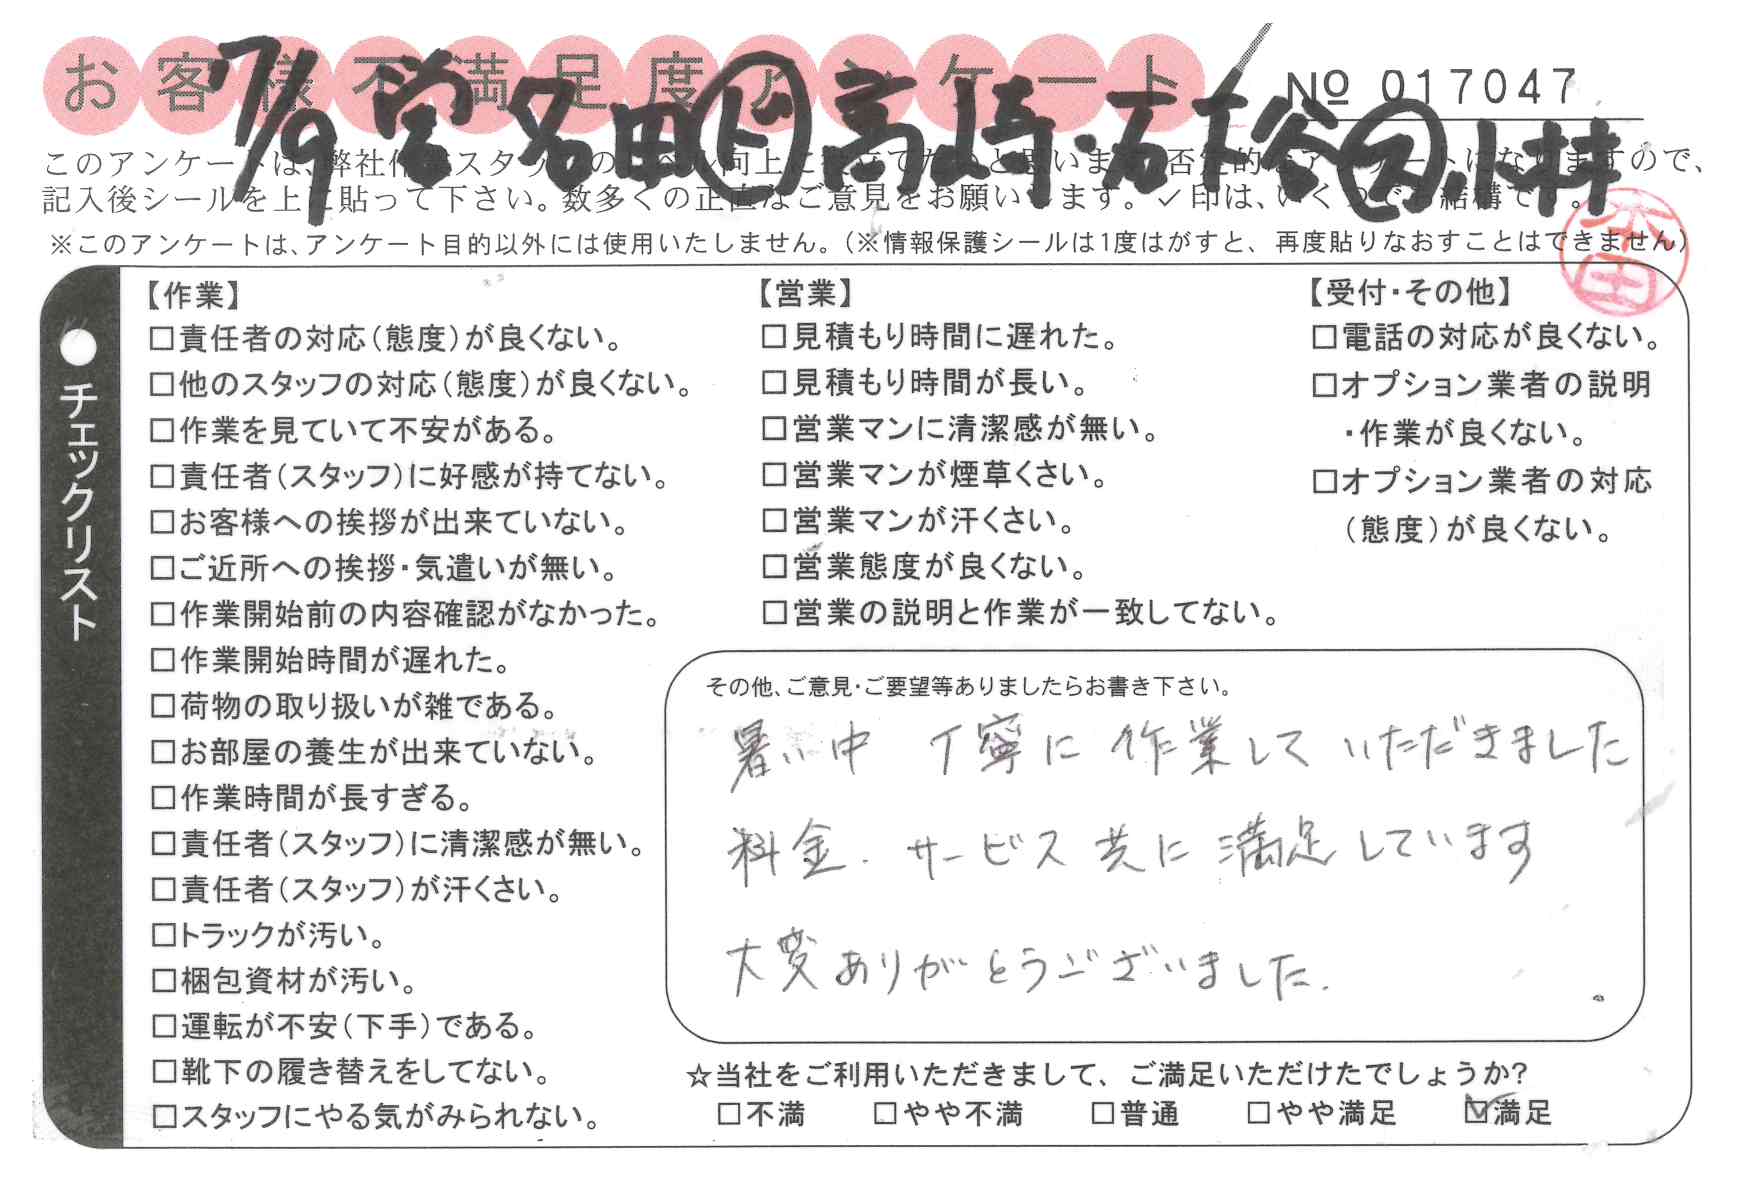 お客様不満足度アンケート
No 017047
7/9 営 名田 ド 高崎・古 裕 ス 小井
このアンケートは、弊社作業スタッフのレベル向上に役立てたいと思います。否定的なアンケートになりますので、
記入後シールを上に貼って下さい。数多くの正直なご意見をお願いします。✓印は、いくつでも結構です。
※このアンケートは、アンケート目的以外には使用いたしません。（※情報保護シールは1度はがすと、再度貼りなおすことはできません）
本田
●チェックリスト
【作業】
□責任者の対応（態度）が良くない。
□他のスタッフの対応（態度）が良くない。
□作業を見ていて不安がある。
□責任者（スタッフ）に好感が持てない。
□お客様への挨拶が出来ていない。
□ご近所への挨拶・気遣いが無い。
□作業開始前の内容確認がなかった。
□作業開始時間が遅れた。
□荷物の取り扱いが雑である。
□お部屋の養生が出来ていない。
□作業時間が長すぎる。
□責任者（スタッフ）に清潔感が無い。
□責任者（スタッフ）が汗くさい。
□トラックが汚い。
□梱包資材が汚い。
□運転が不安（下手）である。
□靴下の履き替えをしてない。
□スタッフにやる気がみられない。
【営業】
□見積もり時間に遅れた。
□見積もり時間が長い。
□営業マンに清潔感が無い。
□営業マンが煙草くさい。
□営業マンが汗くさい。
□営業態度が良くない。
□営業の説明と作業が一致してない。
【受付・その他】
□電話の対応が良くない。
□オプション業者の説明
・作業が良くない。
□オプション業者の対応
（態度）が良くない。
その他、ご意見・ご要望等ありましたらお書き下さい。
暑い中 丁寧に 作業して いただきました
料金・サービス 共に 満足しています
大変ありがとうございました。
☆当社をご利用いただきまして、ご満足いただけたでしょうか?
□不満 □やや不満 □普通 □やや満足 ☑満足